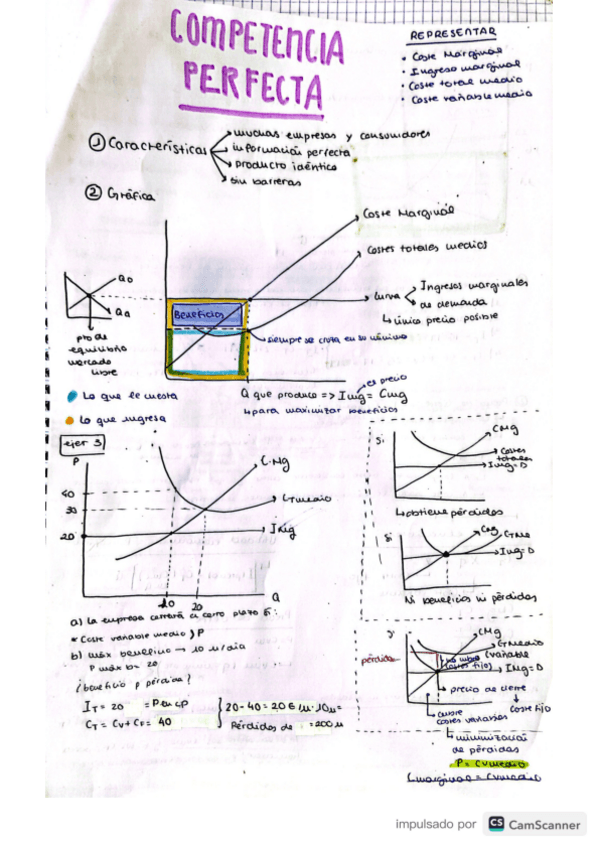 COMPETENCIA
PERFECTA
REPRESENTAR
• Coste Marginal
• Ingreso marginal
• Coste total medio
• Coste variable medio
① Características
muchas empresas y consumidores
información perfecta
producto idéntico
sin barreras
② Gráfica
Coste Marginal
Costes totales medios
Curva
Ingresos marginales
de demanda
↳ único precio posible
Beneficios
siempre se cruza en su mínimo
pto de
equilibrio
mercado
libre
Lo que le cuesta
Lo que ingresa
es precio
Q que produce => Img = Cmg
↳ para maximizar beneficios
ejer 3
P
40
30
20
C.Mg
CTmedio
IMg
10
20
Q
Si
CMg
Costes
totales
Img=D
↳ obtiene pérdidas
Si
Cmg
CTMe
Img=D
Ni beneficios ni pérdidas
a) la empresa cerrará a corto plazo si:
* Coste variable medio > P
b) máx beneficio → 10 u/dia
P máx b = 20
¿beneficio o pérdida?
IT = 20
CT = CV + CF = 40
20-40 = 20 €/u · 10u =
Pérdidas de = 200 u
pérdida
CMg
CTmedio
Cvariable
no cubre
(costes fijo)
IMg=D
precio de cierre
Coste fijo
cubre
costes variables
↳ minimización
de pérdidas
P = CVmedio
Cmarginal = CVmedio
impulsado por CS CamScanner